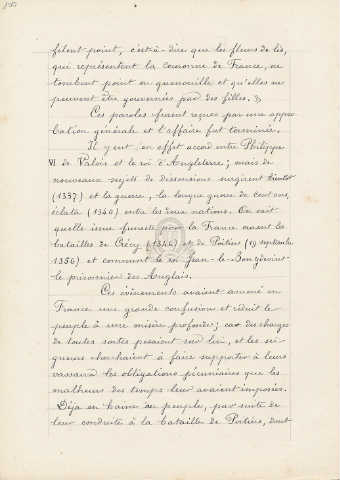 filent point, c'est-à-dire que les fleurs de lis,
qui représentent la couronne de France, ne
tombent point en quenouille et qu'elles ne
peuvent être gouvernées par des filles. »
Ces paroles furent reçues par une appro
bation générale et l'affaire fut terminée.
Il y eut en effet accord entre Philippe
VI de Valois et le roi d'Angleterre ; mais de
nouveaux sujets de dissensions surgirent bientôt
(1337) et la guerre, la longue guerre de cent ans,
éclata (1340) entre les deux nations. On sait
quelle issue funeste pour la France eurent les
batailles de Crécy (1346) et de Poitiers (19 septembre
1356) et comment le roi Jean-le-Bon devint
le prisonnier des Anglais.
Ces événements avaient amené en
France une grande confusion et réduit le
peuple à une misère profonde ; car des charges
de toutes sortes pesaient sur lui, et les sei-
gneurs cherchaient à faire supporter à leurs
vassaux les obligations pécuniaires que les
malheurs des temps leur avaient imposées.
Déjà en haine au peuple, par suite de
leur conduite à la bataille de Poitiers, dont